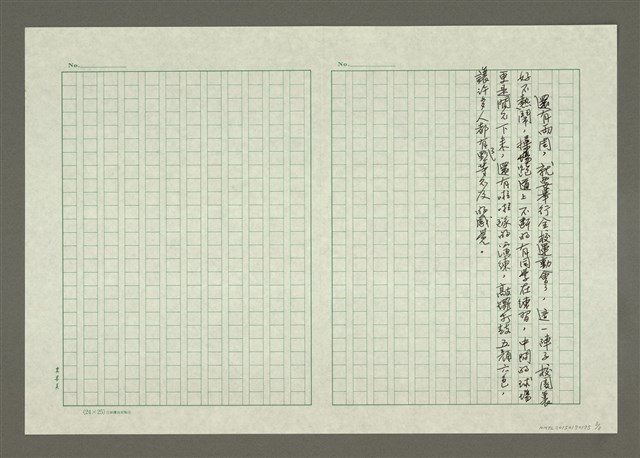 No.
還有兩周，就要舉行全校運動會了，這一陣子校園裏
好不熱鬧，操場跑道上不斷的有同學在練習，中間的球場
更是閒不下來，還有啦啦隊的演練，敲鑼打鼓五顏六色，
讓許多人都有些等不及的感覺。
No.
(24×25)